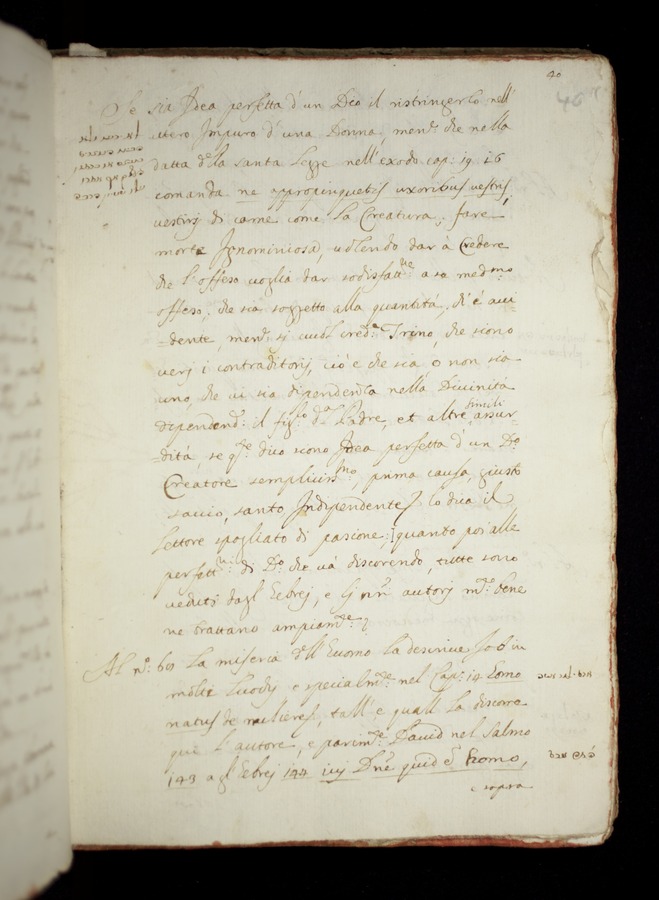 40
46
Se sia Idea perfetta d'un Dio il ristringerlo nell'
utero Impuro d'una Donna, ment.e che nella
datta d.la santa Legge nell'exodo cap: 19. 15
comanda ne appropinquetis uxoribus vestris,
vestirsi di carne come la Creatura, fare
morte Ignominiosa, volendo dar à Credere
che l'offeso voglia dar sodisfatt.ne a se med.mo
offeso, che sia soggetto alla quantità, ch'è acci
-dente, ment.e si vuol cred.e Trino, che siono
veri i contraditorij, cio è che sia, o non sia
uno, che vi sia dipendenza nella Divinità
dipendend.o il fig.lo d.al Padre, et altre simili assur
-dità, se q.te dico siono Idea perfetta d'un D.o
Creatore semplicis.mo, prima causa, giusto
savio, santo Independente, lo dica il
Lettore spogliato di pasione; quanto poi alle
perfett.ni di D.o che và discorendo, tutte sono
vedute dagl'Ebrej, e li nri autori m.to bene
ne trattano ampiam.te
Al n.o: 69 La miseria dell'Huomo la descrive Job in
molti Luoghi e specialm.te nel Cap: 14 homo
natus de muliere, tall'e quall la discorre
quì l'autore, e parim.te David nel Salmo
143 agl'Ebrej 144 ivi Dne quid est homo,
sopra